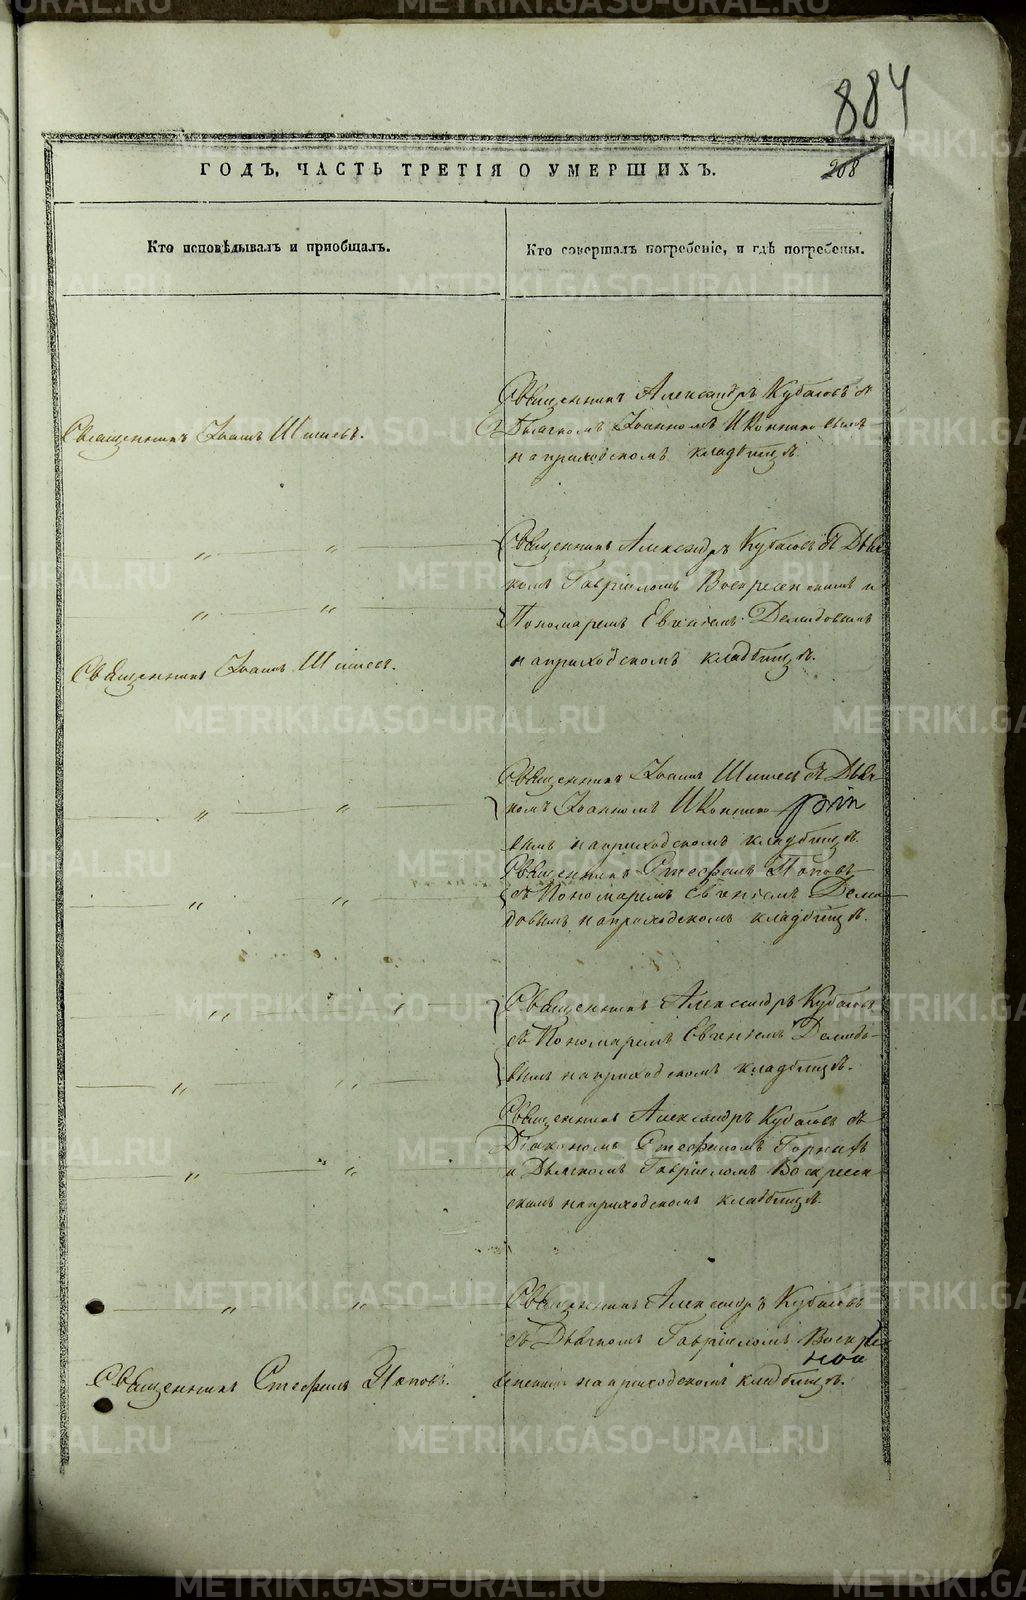 884
208
ГОДЪ, ЧАСТЬ ТРЕТІЯ О УМЕРШИХЪ.
Кто исповѣдывалъ и пріобщалъ.
Кто совершалъ погребеніе, и гдѣ погребены.
Священникъ Іоаннъ Шишевъ.
Священникъ Александръ Кубасовъ съ
Дьячкомъ Іоанномъ Иконниковымъ
на приходскомъ кладбищѣ.
" "
Священникъ Александръ Кубасовъ съ Дьяч
комъ Гавріиломъ Воскресенскимъ и
" "
Пономаремъ Евгеніемъ Демидовымъ
на приходскомъ кладбищѣ.
Священникъ Іоаннъ Шишевъ.
Священникъ Іоаннъ Шишевъ съ Дьяч
" "
комъ Іоанномъ Иконнико
вымъ на приходскомъ кладбищѣ.
Священникъ Стефанъ Поповъ
" "
съ Пономаремъ Евгеніемъ Деми
довымъ на приходскомъ кладбищѣ.
" "
Священникъ Александръ Кубасовъ
съ Пономаремъ Евгеніемъ Демидо-
" "
вымъ на приходскомъ кладбищѣ.
Священникъ Александръ Кубасовъ съ
Діакономъ Стефаномъ
" "
и Дьячкомъ Гавріиломъ Воскресен
скимъ на приходскомъ кладбищѣ.
" "
Священникъ Александръ Кубасовъ
съ Дьячкомъ Гавріиломъ Воскре
Священникъ Стефанъ Поповъ.
сенскимъ на приходскомъ кладбищѣ.
METRIKI.GASO-URAL.RU